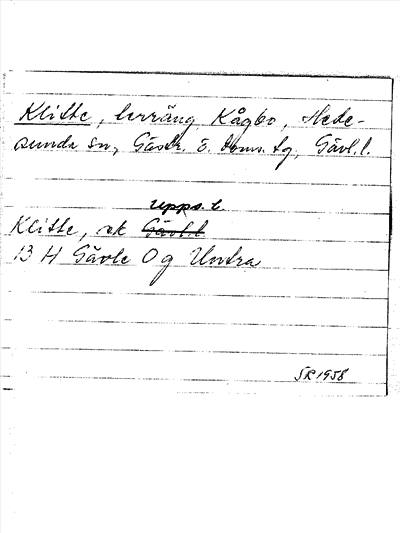 Klitte, terräng Kågbo, Hede-
sunda sn, Gästr. ö. doms. tg, Gävl. l.
Upps. l.
Klitte, ek Gävl. l
13 H Gävle Og Untra
SR 1958